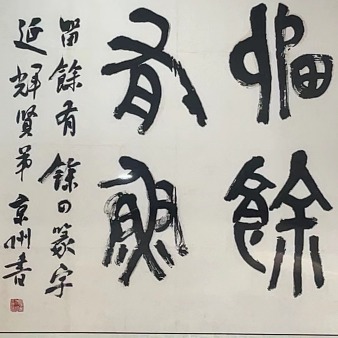 留餘
有魚
留餘有餘四篆字
延輝賢弟 京州書